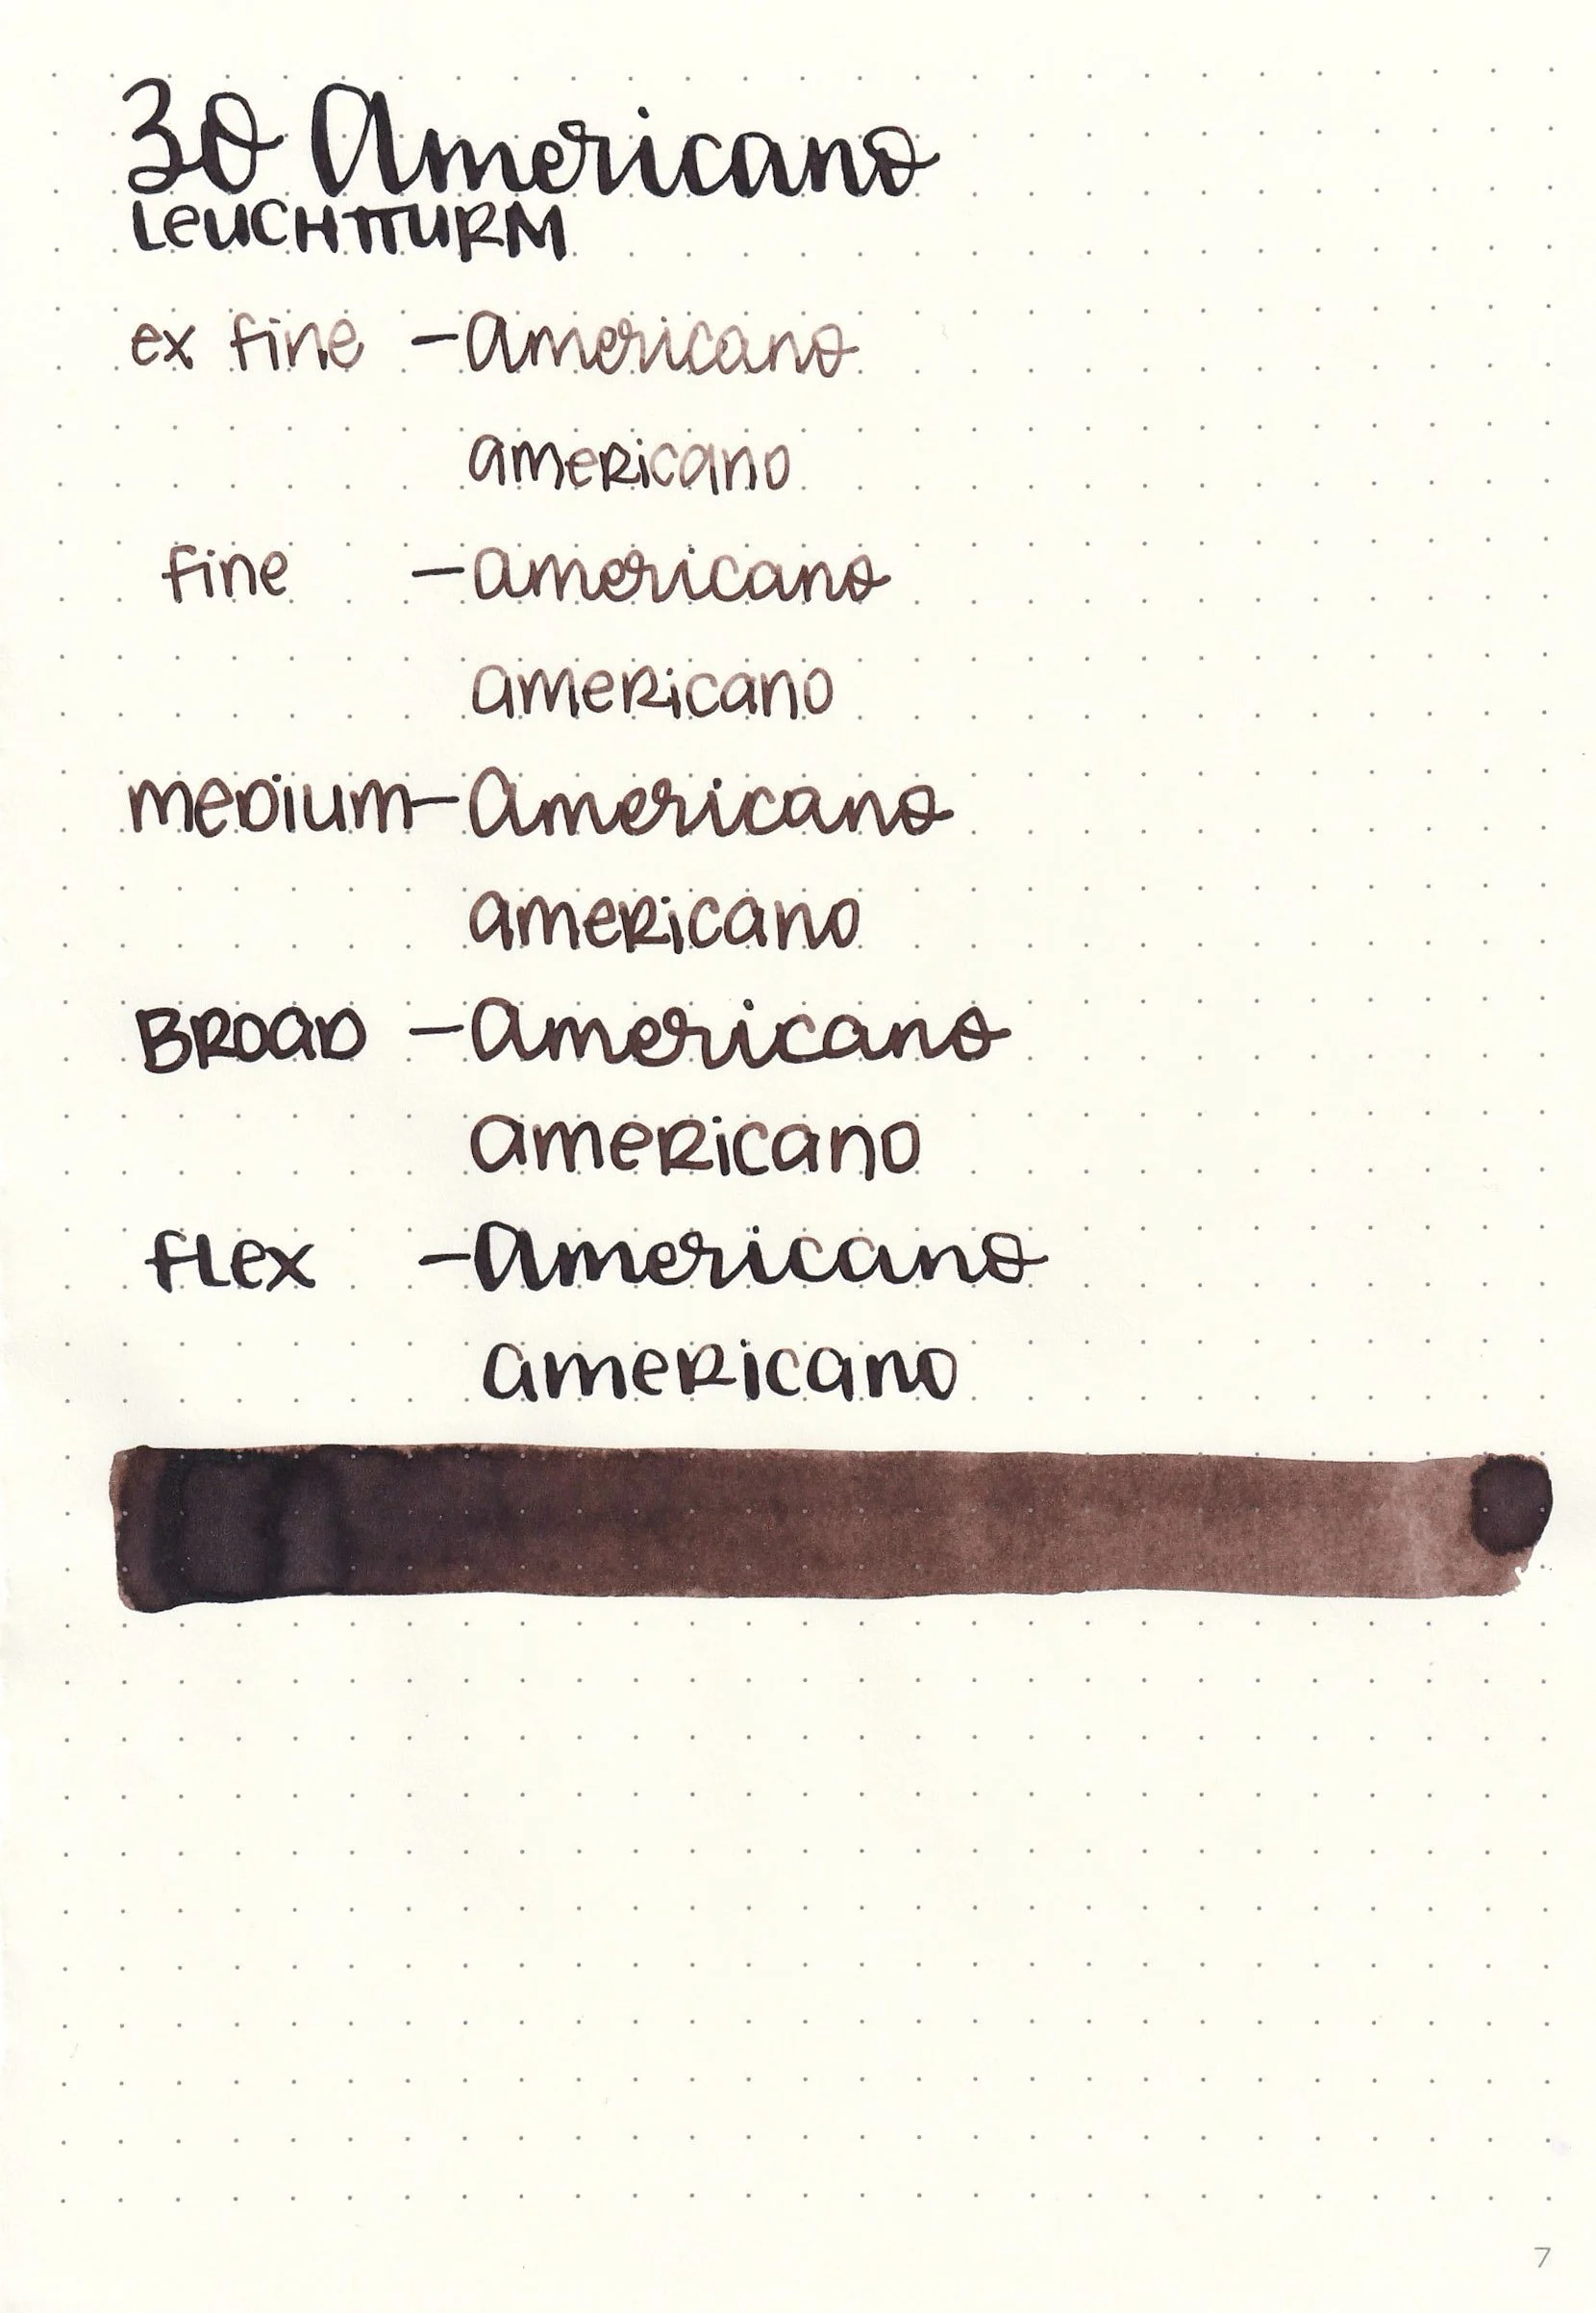 30 Americano
LeUCHTTURM
ex fine - americano
americano
fine - americano
americano
meDium - americano
ameRicano
BROaD - americano
ameRicano
fLex - americano
ameRicano
7